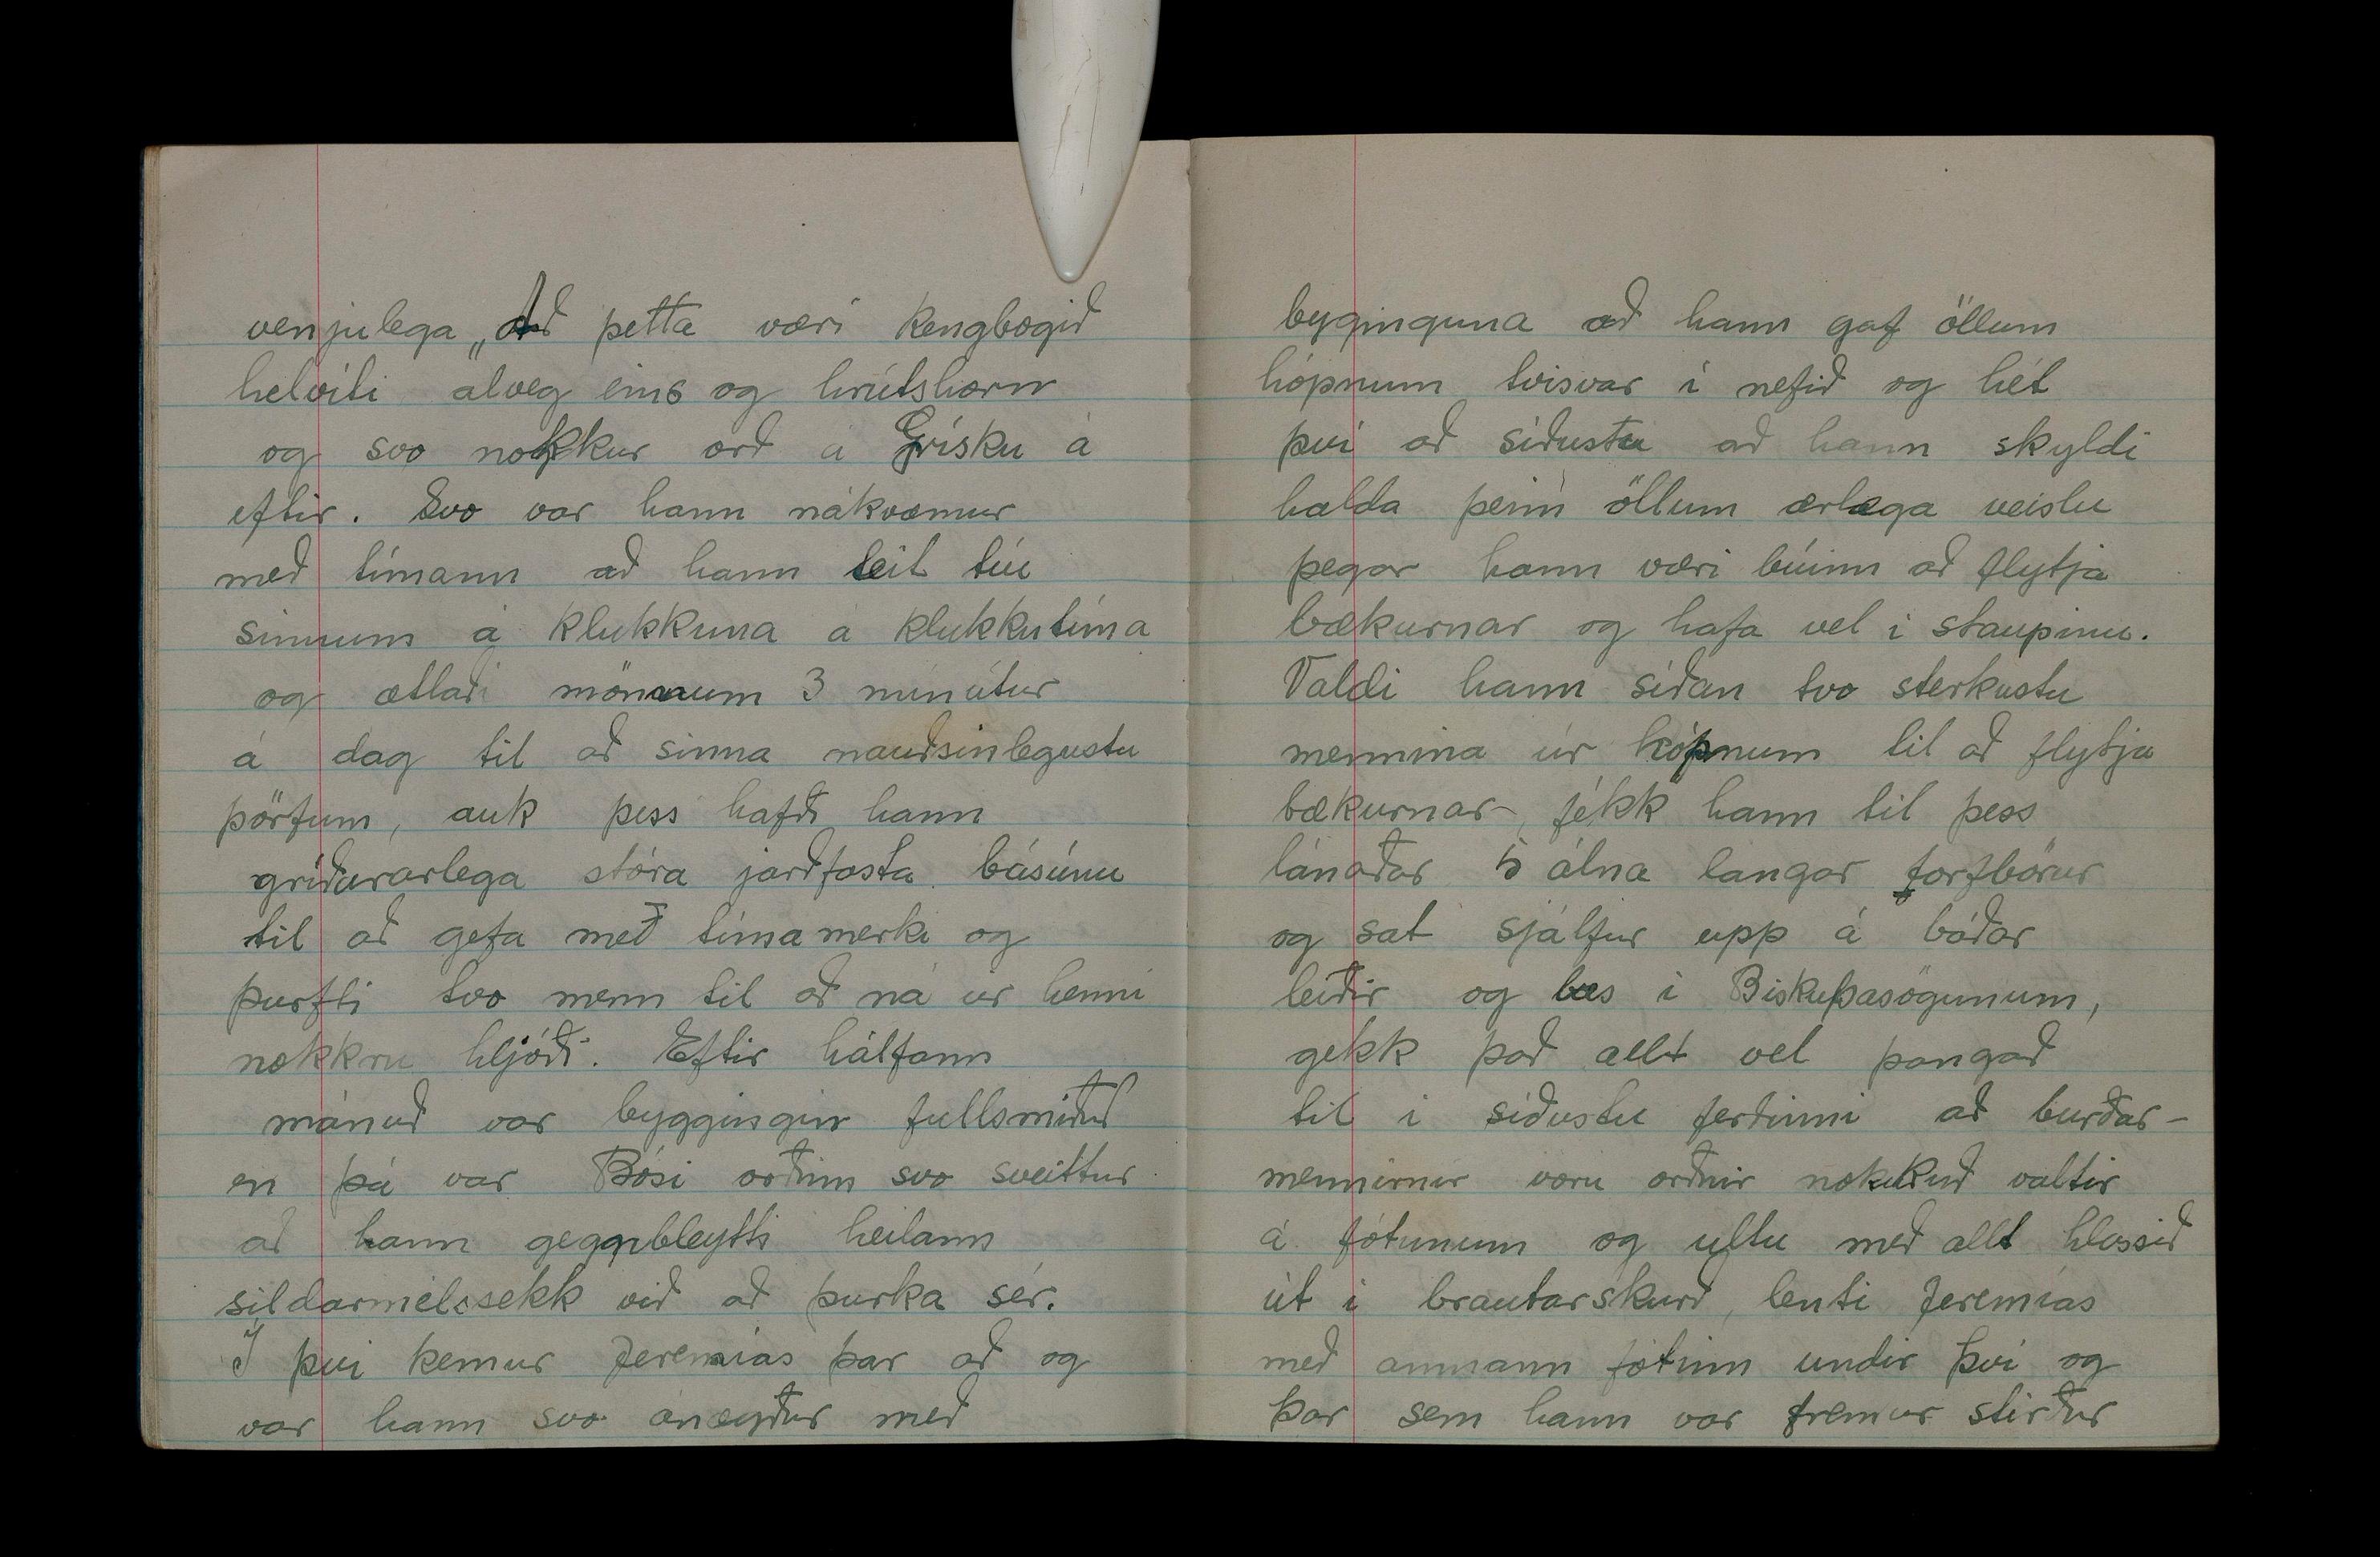 venjulega „Að þetta væri kengbogið
helvíti alveg eins og hrútshorn
og svo nokkur orð á Grísku á
eftir. Svo var hann nákvæmur
með tímann að hann leit tíu
sinnum á klukkuna á klukkutíma
og ætlaði mönnum 3 mínútur
á dag til að sinna nauðsinlegustu
þörfum, auk þess hafði hann
gríðararlega stóra jarðfasta básúnu
til að gefa með tímamerki og
þurfti tvo menn til að ná úr henni
nokkru hljóði. Eftir hálfann
mánuð var byggingin fullsmíðuð
en þá var Bósi orðinn svo sveittur
að hann gegnbleytti heilann
síldarmélssekk við að þurka sér.
Í því kemur Jeremías þar að og
var hann svo ánægður með
bygginguna að hann gaf öllum
hópnum tvisvar í nefið og hét
því að síðustu að hann skyldi
halda þeim öllum ærlega veislu
þegar hann væri búinn að flytja
bækurnar og hafa vel í staupinu.
Valdi hann síðan tvo sterkustu
mennina úr hópnum til að flytja
bækurnar, fékk hann til þess
lánaðar 5 álna langar torfbörur
og sat sjálfur upp á báðar
leiðir og las í Biskupasögunum,
gekk það allt vel þangað
til í síðustu ferðinni að burðar-
mennirnir voru orðnir nokkuð valtir
á fótunum og ultu með allt hlassið
út í brautarskurð, lenti Jeremías
með annann fótinn undir því og
þar sem hann var fremur stirður